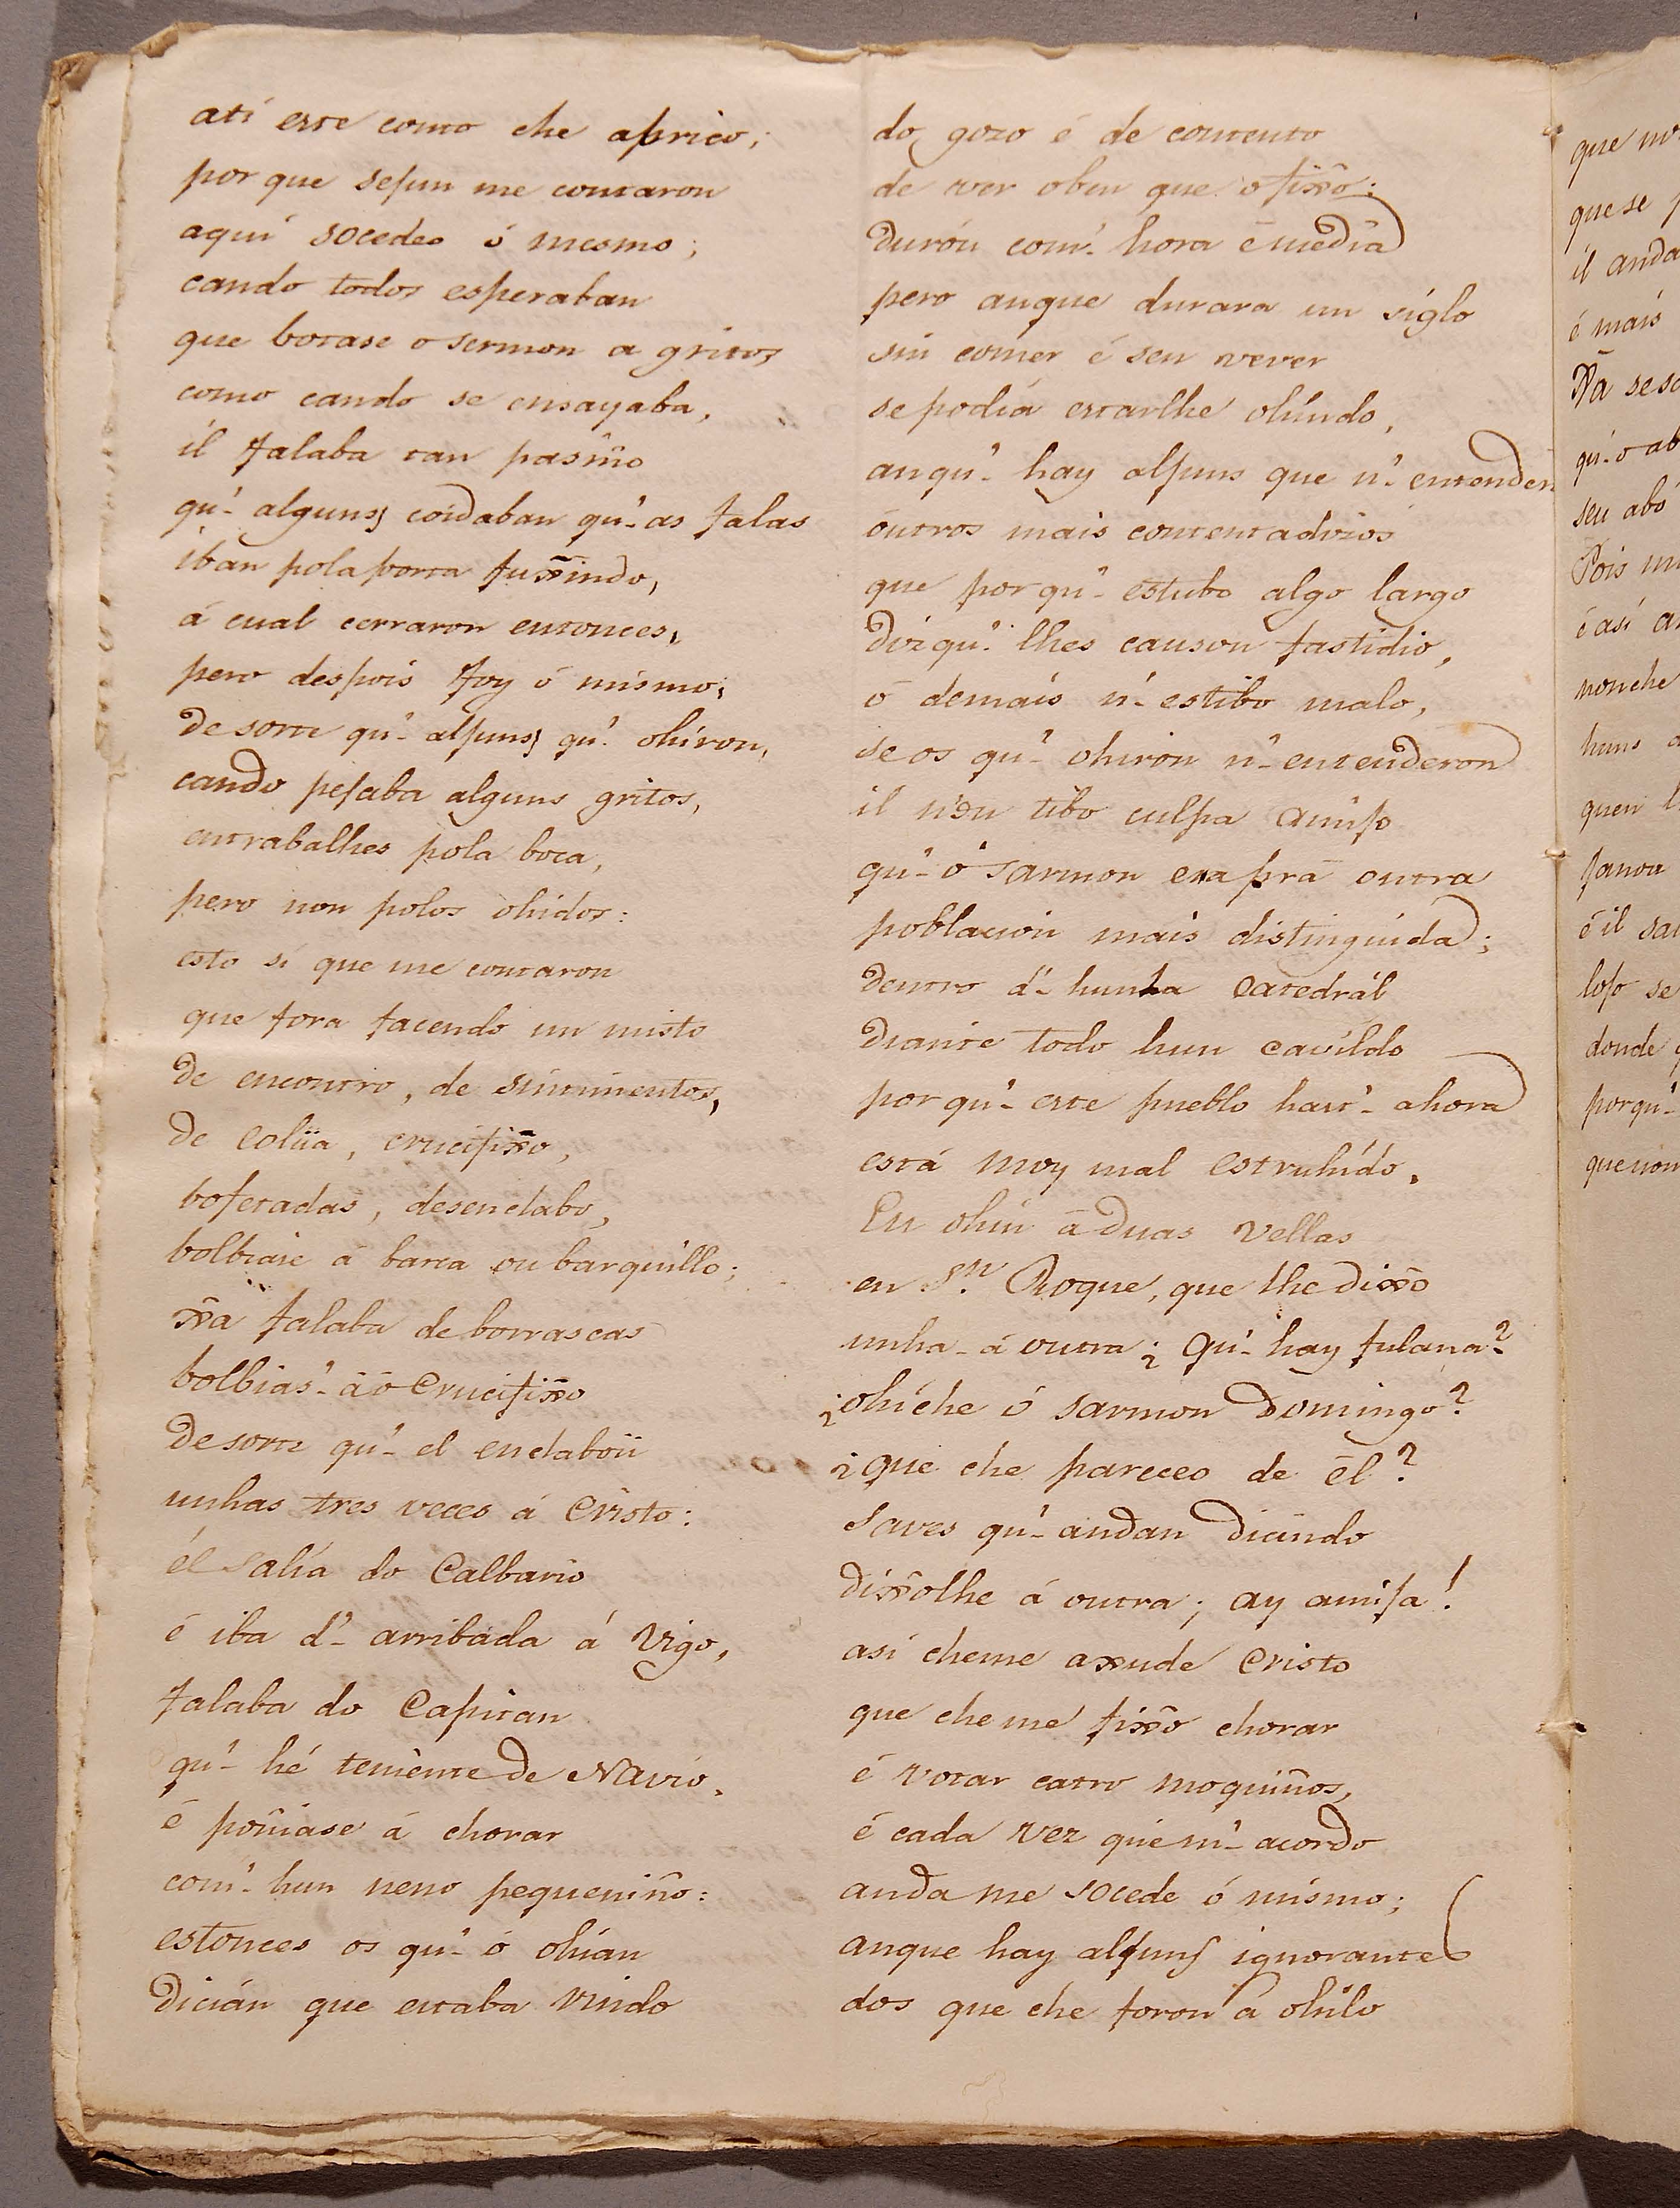 atí este como che aprico;
por que segun me contaron
aquí socedeo ó mesmo;
cando todos esperaban
que botase o sermon a gritos
como cando se ensayaba,
il falaba tan pasiño
qu'- alguns coidaban qu'- as falas
iban pola porta fux̃indo,
á cual cerraron entonces,
pero despois foy ó mismo;
de sorte qu'- alguns qu'. ohiron,
cando pegaba alguns gritos,
entraballes pola boca,
pero non polos ohidos:
esto sí que me contaron
que fora facendo un misto
de encontro, de sintimentos,
de coluа, crucifix̃o,
bofetadas, desenclabo,
bolbiase á barca ou barquillo;
x̃a falaba de borrascas
bolbias'- ãó Crucifix̃o
de sorte qu'- el enclaboü
unhas tres veces á Cristo:
él salía do Calbario
é iba d'- arribada á Vigo,
falaba do Capitan
qu'- hé teniente de Navio,
é poñiase á chorar
com'- hun neno pequeniño:
estonces os qu'- ó ohían
dicián que estaba vindo
do gozo é de contento
de ver oben que o fix̃o:
duróu com'- hora é media
pero anque durara un siglo
sin comer é sen vever
se podía estarlhe ohíndo,
anqu'- hay alguns que n'- entenden
óutros mais contentadizos
que porqu'- estubo algo largo
dizqu'. lhes causou fastidio,
ó demais n'- estibo malo,
se os qu'- ohiron n'- entenderon
il n'en tibo culpa amigo
qu'- ó sarmon era pra outra
poblacion mais distinguida;
dentro d'- hunha Catedrál
diante todo hun cavildo
porqu'- este pueblo hast'- ahora
está moy mal estruhído.
Eu ohín á duas vellas
en Sn. Roque, que lhe dix̃o
unha- á outra; ¿qu'- hay fulana?
¿ohíche ó sarmon Domingo?
¿que che pareceo de él?
Saves qu'- andan dicindo
dix̃olhe á outra; ay amiga!
así cheme ax̃ude Cristo
que che me fix̃o chorar
é votar catro moquiños,
é cada vez que m'- acordo
anda me socede ó mismo;
anque hay alguns ignorantes
dos que che foron á ohilo